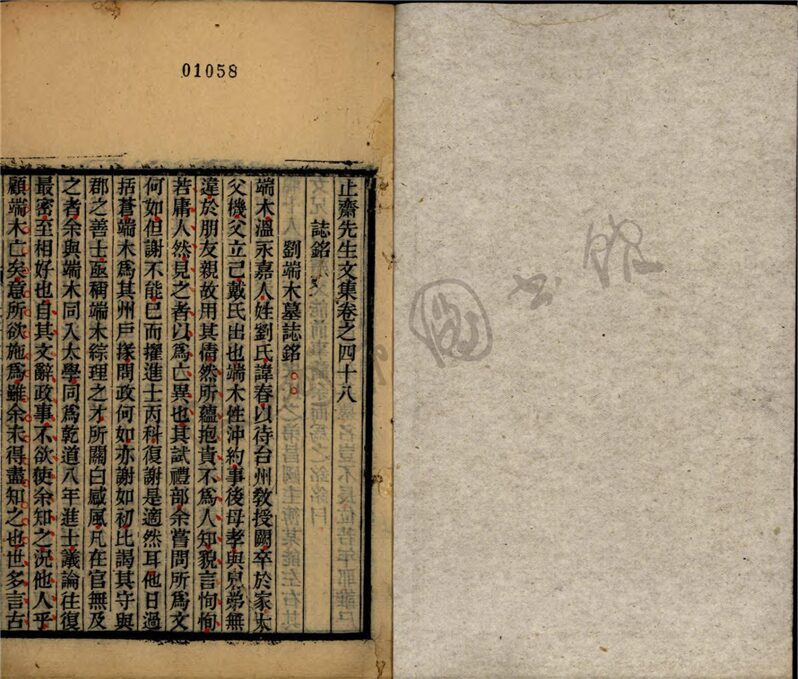 01058
止齋先生文集卷之四十八
誌銘
劉端木墓誌銘
端木溫永嘉人姓劉氏諱春以待台州教授闕卒於家大
父機父立己戴氏出也端木性沖約事後母孝與兄弟無
違於朋友親故用其儔然所蘊抱貴不爲人知貌言恂恂
若庸人然見之者以爲亡異也其試禮部余嘗問所爲文
何如但謝不能已而擢進士丙科復謝是適然耳他日過
括蒼端木爲其州戶掾問政何如亦謝如初比謁其守與
郡之善士亟稱端木綜理之才所關白感風凡在官無及
之者余與端木同入太學同爲乾道八年進士議論往復
最密至相好也自其文辭政事不欲使余知之況他人乎
顧端木亡矣意所欲施爲雖余未得盡知之也世多言古